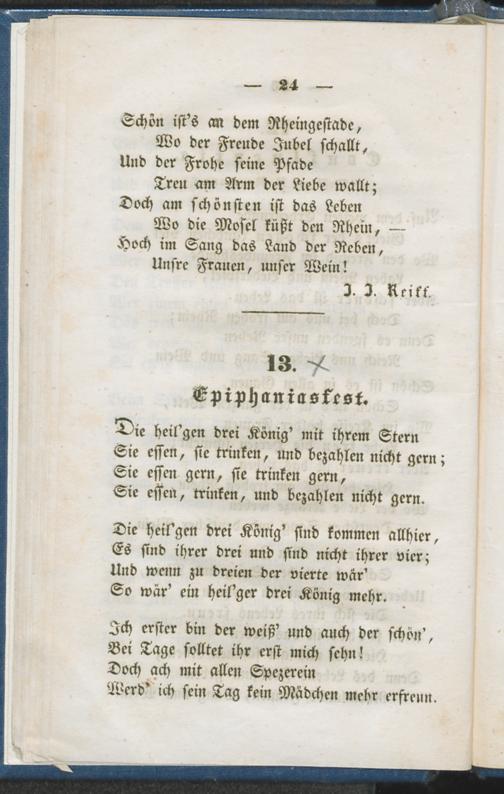 — 24 —
Schön ist's an dem Rheingestade,
Wo der Freude Jubel schallt,
Und der Frohe seine Pfade
Treu am Arm der Liebe wallt;
Doch am schönsten ist das Leben
Wo die Mosel küßt den Rhein, —
Hoch im Sang das Land der Reben,
Unsre Frauen, unser Wein!
J. J. Reiff.
13. x
Epiphaniasfest.
Die heil'gen drei König' mit ihrem Stern
Sie essen, sie trinken, und bezahlen nicht gern;
Sie essen gern, sie trinken gern,
Sie essen, trinken, und bezahlen nicht gern.
Die heil'gen drei König' sind kommen allhier,
Es sind ihrer drei und sind nicht ihrer vier;
Und wenn zu dreien der vierte wär'
So wär' ein heil'ger drei König mehr.
Ich erster bin der weiß' und auch der schön',
Bei Tage solltet ihr erst mich sehn!
Doch ach mit allen Spezerein
Werd' ich sein Tag kein Mädchen mehr erfreun.